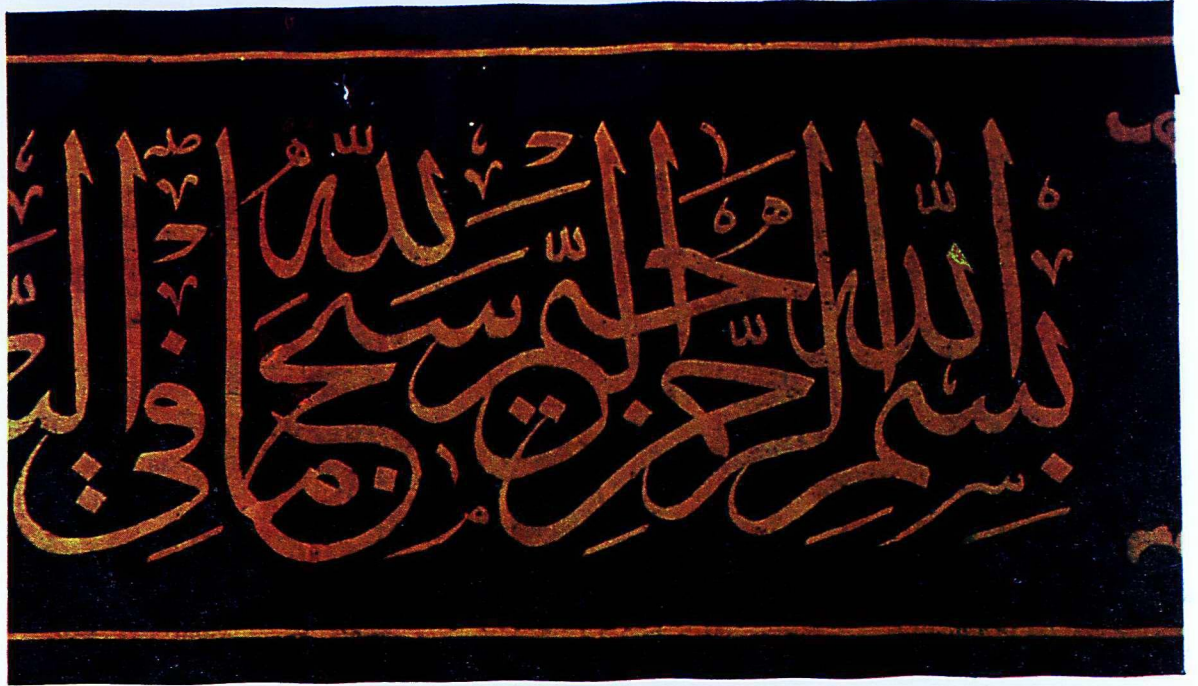 بسم الله الرحمن الرحيم سبح لله ما في